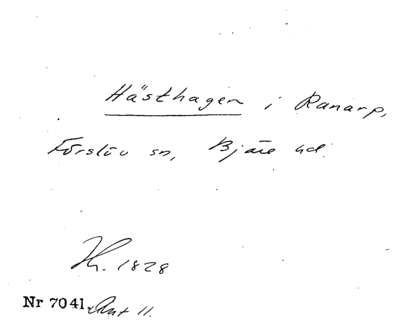 Hästhagen i Ranarp,
Förslöv sn, Bjäre hd.
Hr. 1828
Nr 7041, Ant 11.